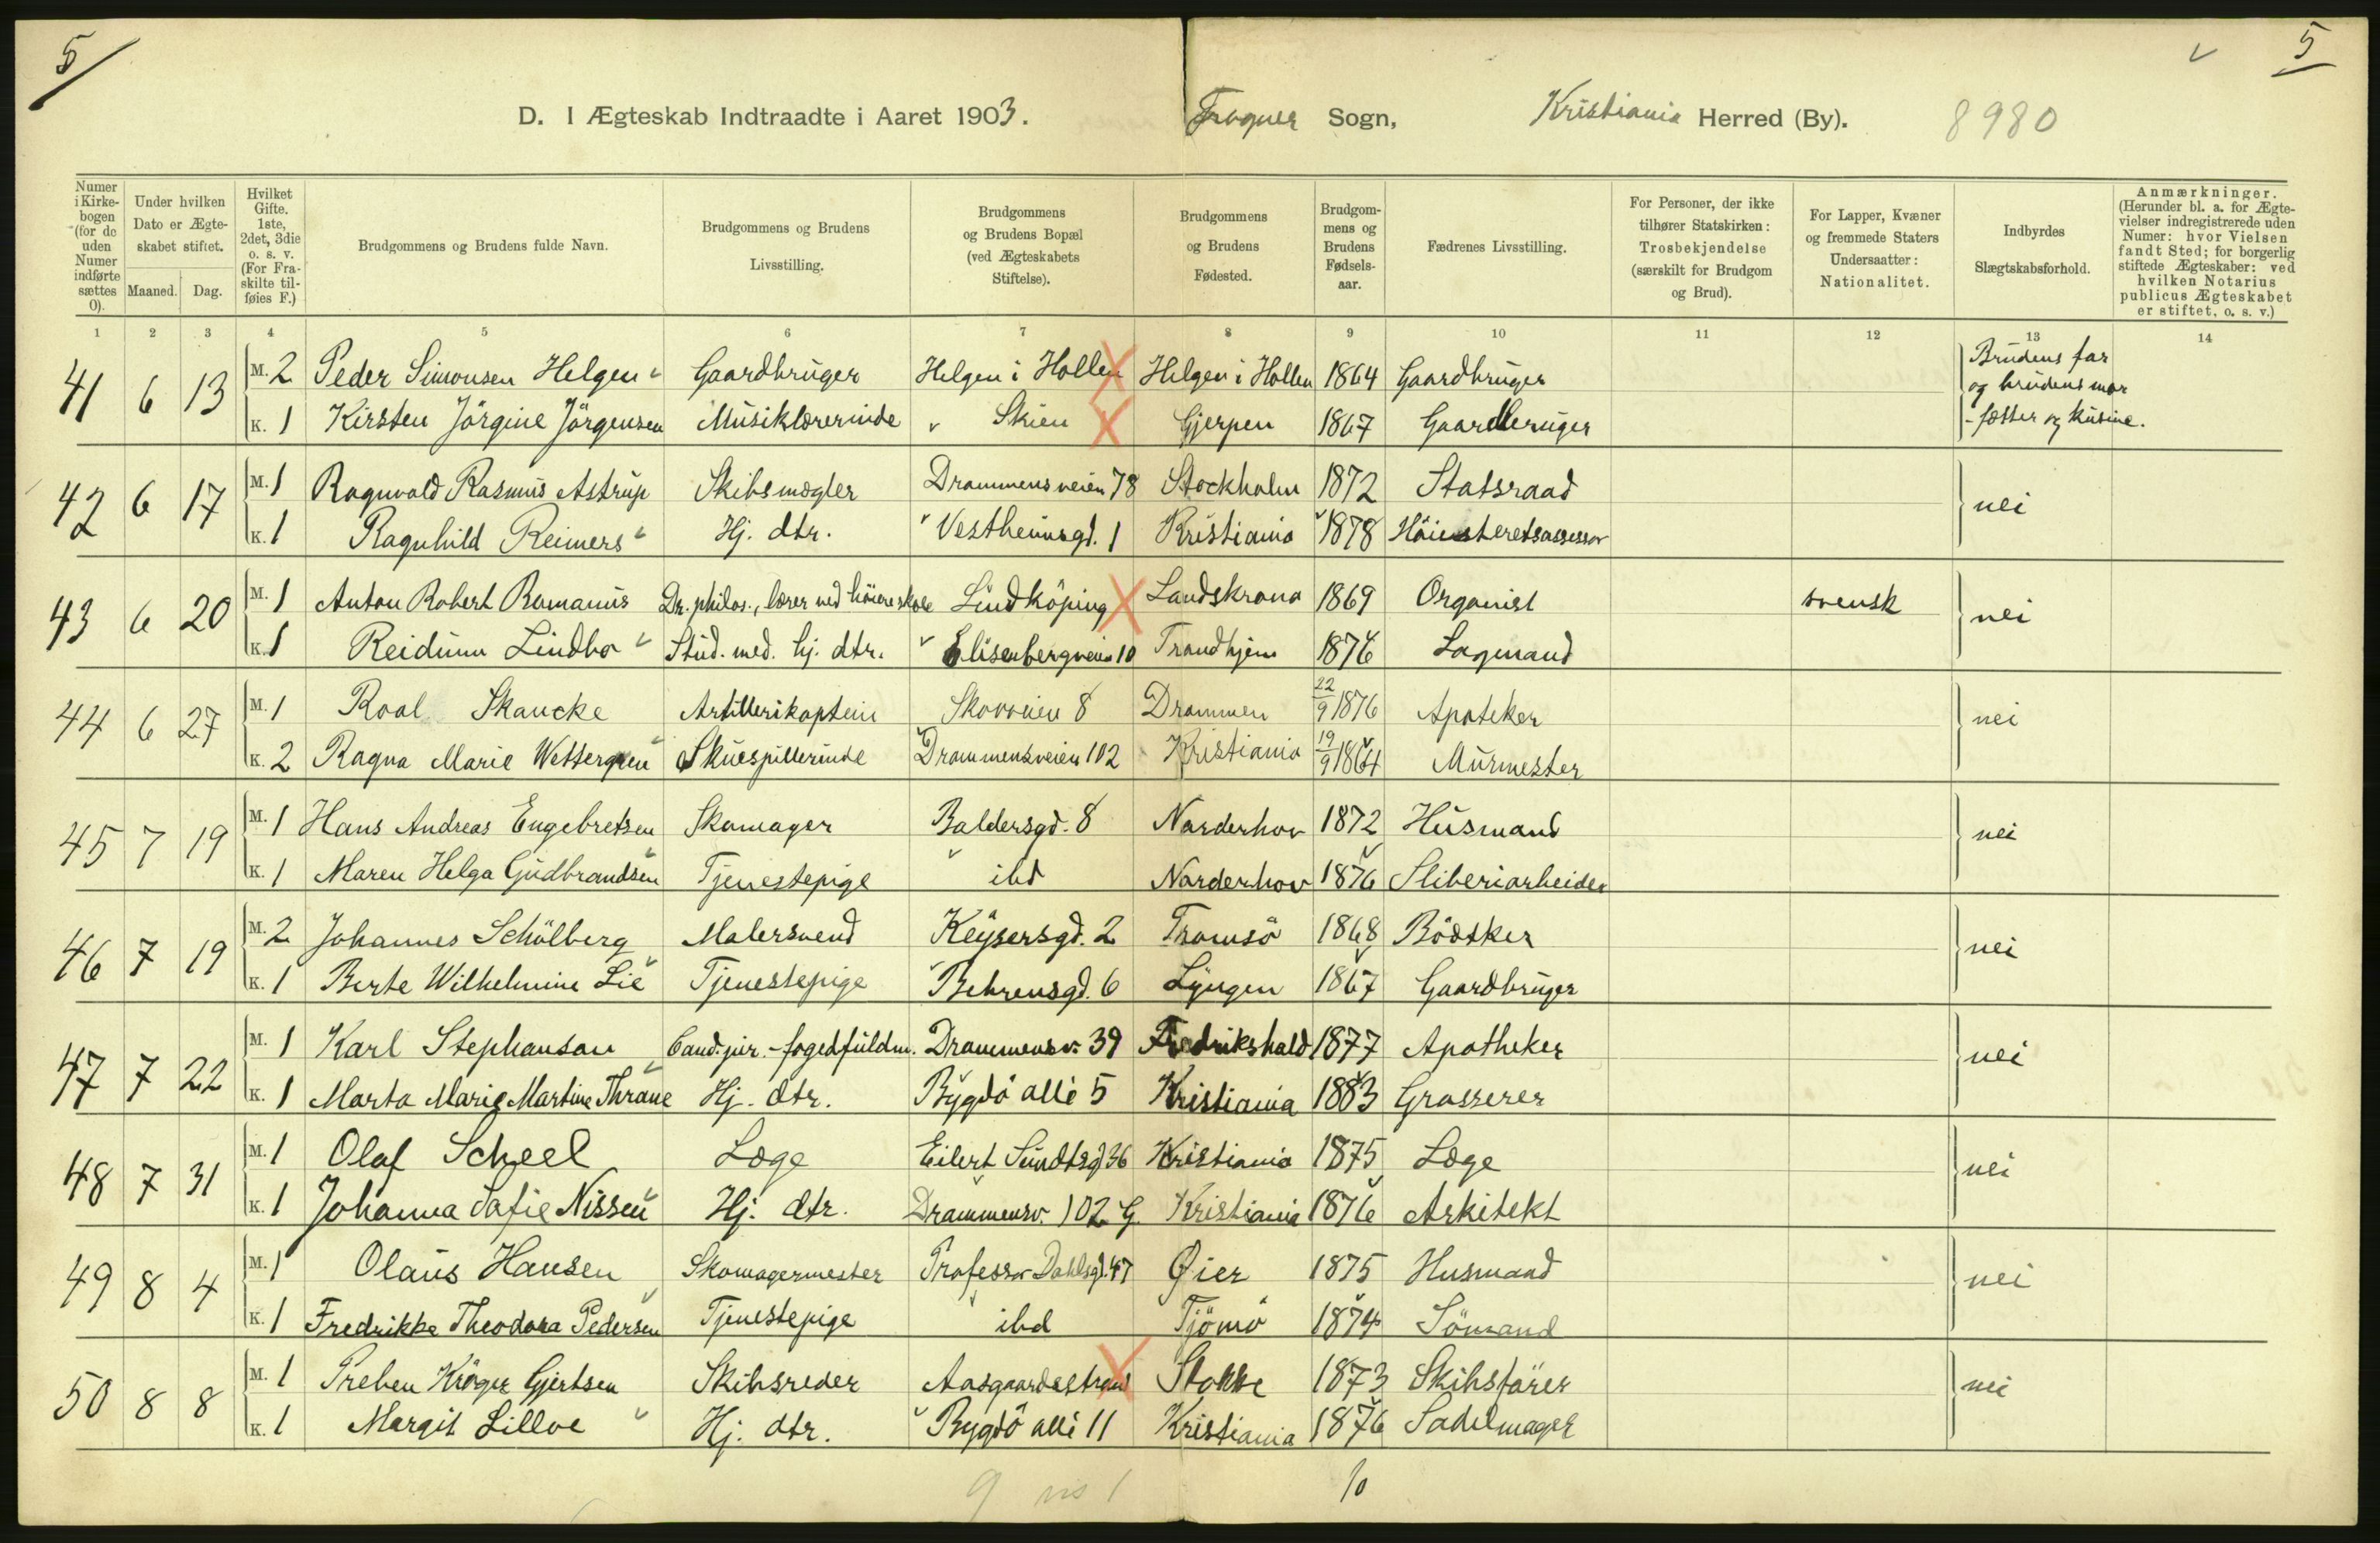 5 v 5
D. I Ægteskab Indtraadte i Aaret 1903. Frogner Sogn, Kristiania Herred (By). 8980
Numer i Kirkebogen (for de uden Numer indførte sættes 0).
Under hvilken Dato er Ægteskabet stiftet.
Maaned. Dag.
Hvilket Gifte. 1ste, 2det, 3die o. s. v. (For Fraskilte tilføies F.)
Brudgommens og Brudens fulde Navn.
Brudgommens og Brudens Livsstilling.
Brudgommens og Brudens Bopæl (ved Ægteskabets Stiftelse).
Brudgommens og Brudens Fødested.
Brudgommens og Brudens Fødselsaar.
Fædrenes Livsstilling.
For Personer, der ikke tilhører Statskirken: Trosbekjendelse (særskilt for Brudgom og Brud).
For Lapper, Kvæner og fremmede Staters Undersaatter: Nationalitet.
Indbyrdes Slægtskabsforhold.
Anmærkninger. (Herunder bl. a. for Ægtevielser indregistrerede uden Numer: hvor Vielsen fandt Sted; for borgerlig stiftede Ægteskaber: ved hvilken Notarius publicus Ægteskabet er stiftet, o. s. v.)
1 2 3 4 5 6 7 8 9 10 11 12 13 14
41 6 13 M. 2 Peder Simonsen Helgen Gaardbruger Helgen i Hollen Helgen i Hollen 1864 Gaardbruger Brudens far og brudens mor - fætter og kusine.
K. 1 Kirsten Jörgine Jörgensen Musiklærerinde Skien Gjerpen 1867 Gaardbruger
42 6 17 M. 1 Ragnvald Rasmus Astrup Skibsmægler Drammensveien 78 Stockholm 1872 Statsraad nei
K. 1 Ragnhild Reimers Hj. dtr. Vestheimsgd. 1 Kristiania 1878 Höiesteretsassessor
43 6 20 M. 1 Anton Robert Romanus Dr. philos., lærer ved höiere skole Lindköping Landskrona 1869 Organist svensk nei
K. 1 Reidunn Lindbo Stud. med. hj. dtr. Elisenbergveien 10 Trondhjem 1876 Lagmand
44 6 27 M. 1 Roal Skancke Artillerikaptein Skovveien 8 Drammen 22/9 1876 Apoteker nei
K. 2 Ragna Marie Wettergren Skuespillerinde Drammensveien 102 Kristiania 19/9 1864 Murmester
45 7 19 M. 1 Hans Andreas Engebretsen Skomager Baldersgd. 8 Norderhov 1872 Husmand nei
K. 1 Maren Helga Gudbrandsen Tjenestepige ibd Norderhov 1876 Sliberiarbeider
46 7 19 M. 2 Johannes Schölberg Malersvend Keysersgd. 2 Tromsö 1868 Bödtker nei
K. 1 Berte Wilhelmine Lie Tjenestepige Behrensgd. 6 Lyngen 1867 Gaardbruger
47 7 22 M. 1 Karl Stephanson Cand. jur. - fogedfuldm. Drammensv. 39 Fredrikshald 1877 Apotheker nei
K. 1 Marta Marie Martine Thrane Hj. dtr. Bygdö alle 5 Kristiania 1883 Grosserer
48 7 31 M. 1 Olaf Scheel Læge Eilert Sundtsgd 36 Kristiania 1875 Læge nei
K. 1 Johanna Sofie Nissen Hj. dtr. Drammensv. 102 G. Kristiania 1876 Arkitekt
49 8 4 M. 1 Olaus Hansen Skomagermester Professor Dahlsgd. 47 Øier 1875 Husmand nei
K. 1 Fredrikke Theodora Pedersen Tjenestepige ibd Tjömö 1874 Sömand
50 8 8 M. 1 Preben Kröger Gjertsen Skibsreder Aasgaardsstrand Stokke 1873 Skibsförer nei
K. 1 Margit Lilloe Hj. dtr. Bygdö alle 11 Kristiania 1876 Sadelmager
10